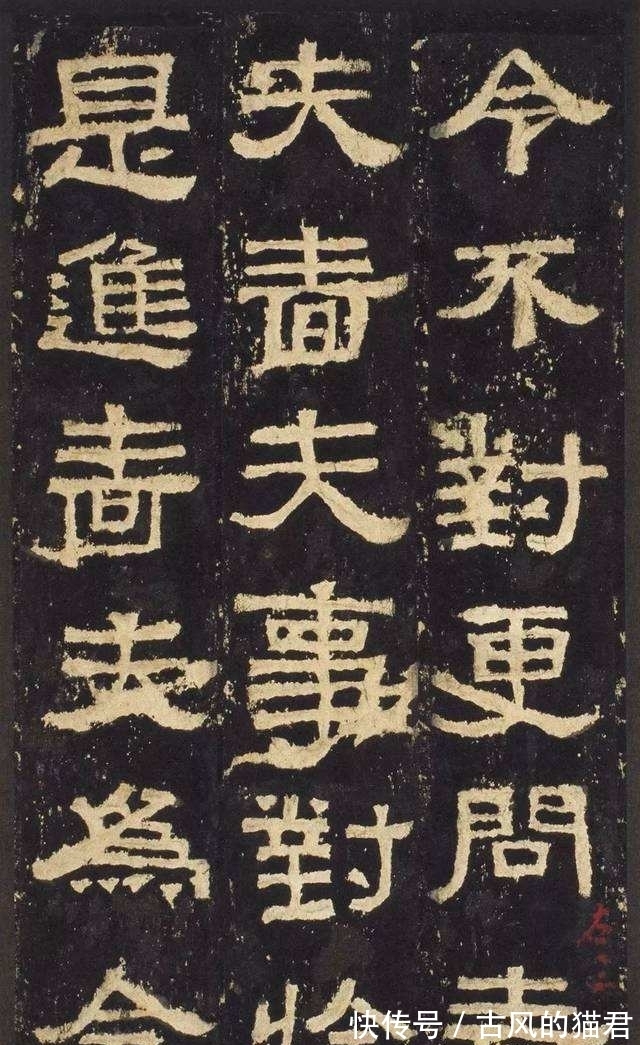 令不對更問嗇
夫嗇夫事對於
是進嗇夫為令
快传号 / 古风的猫君